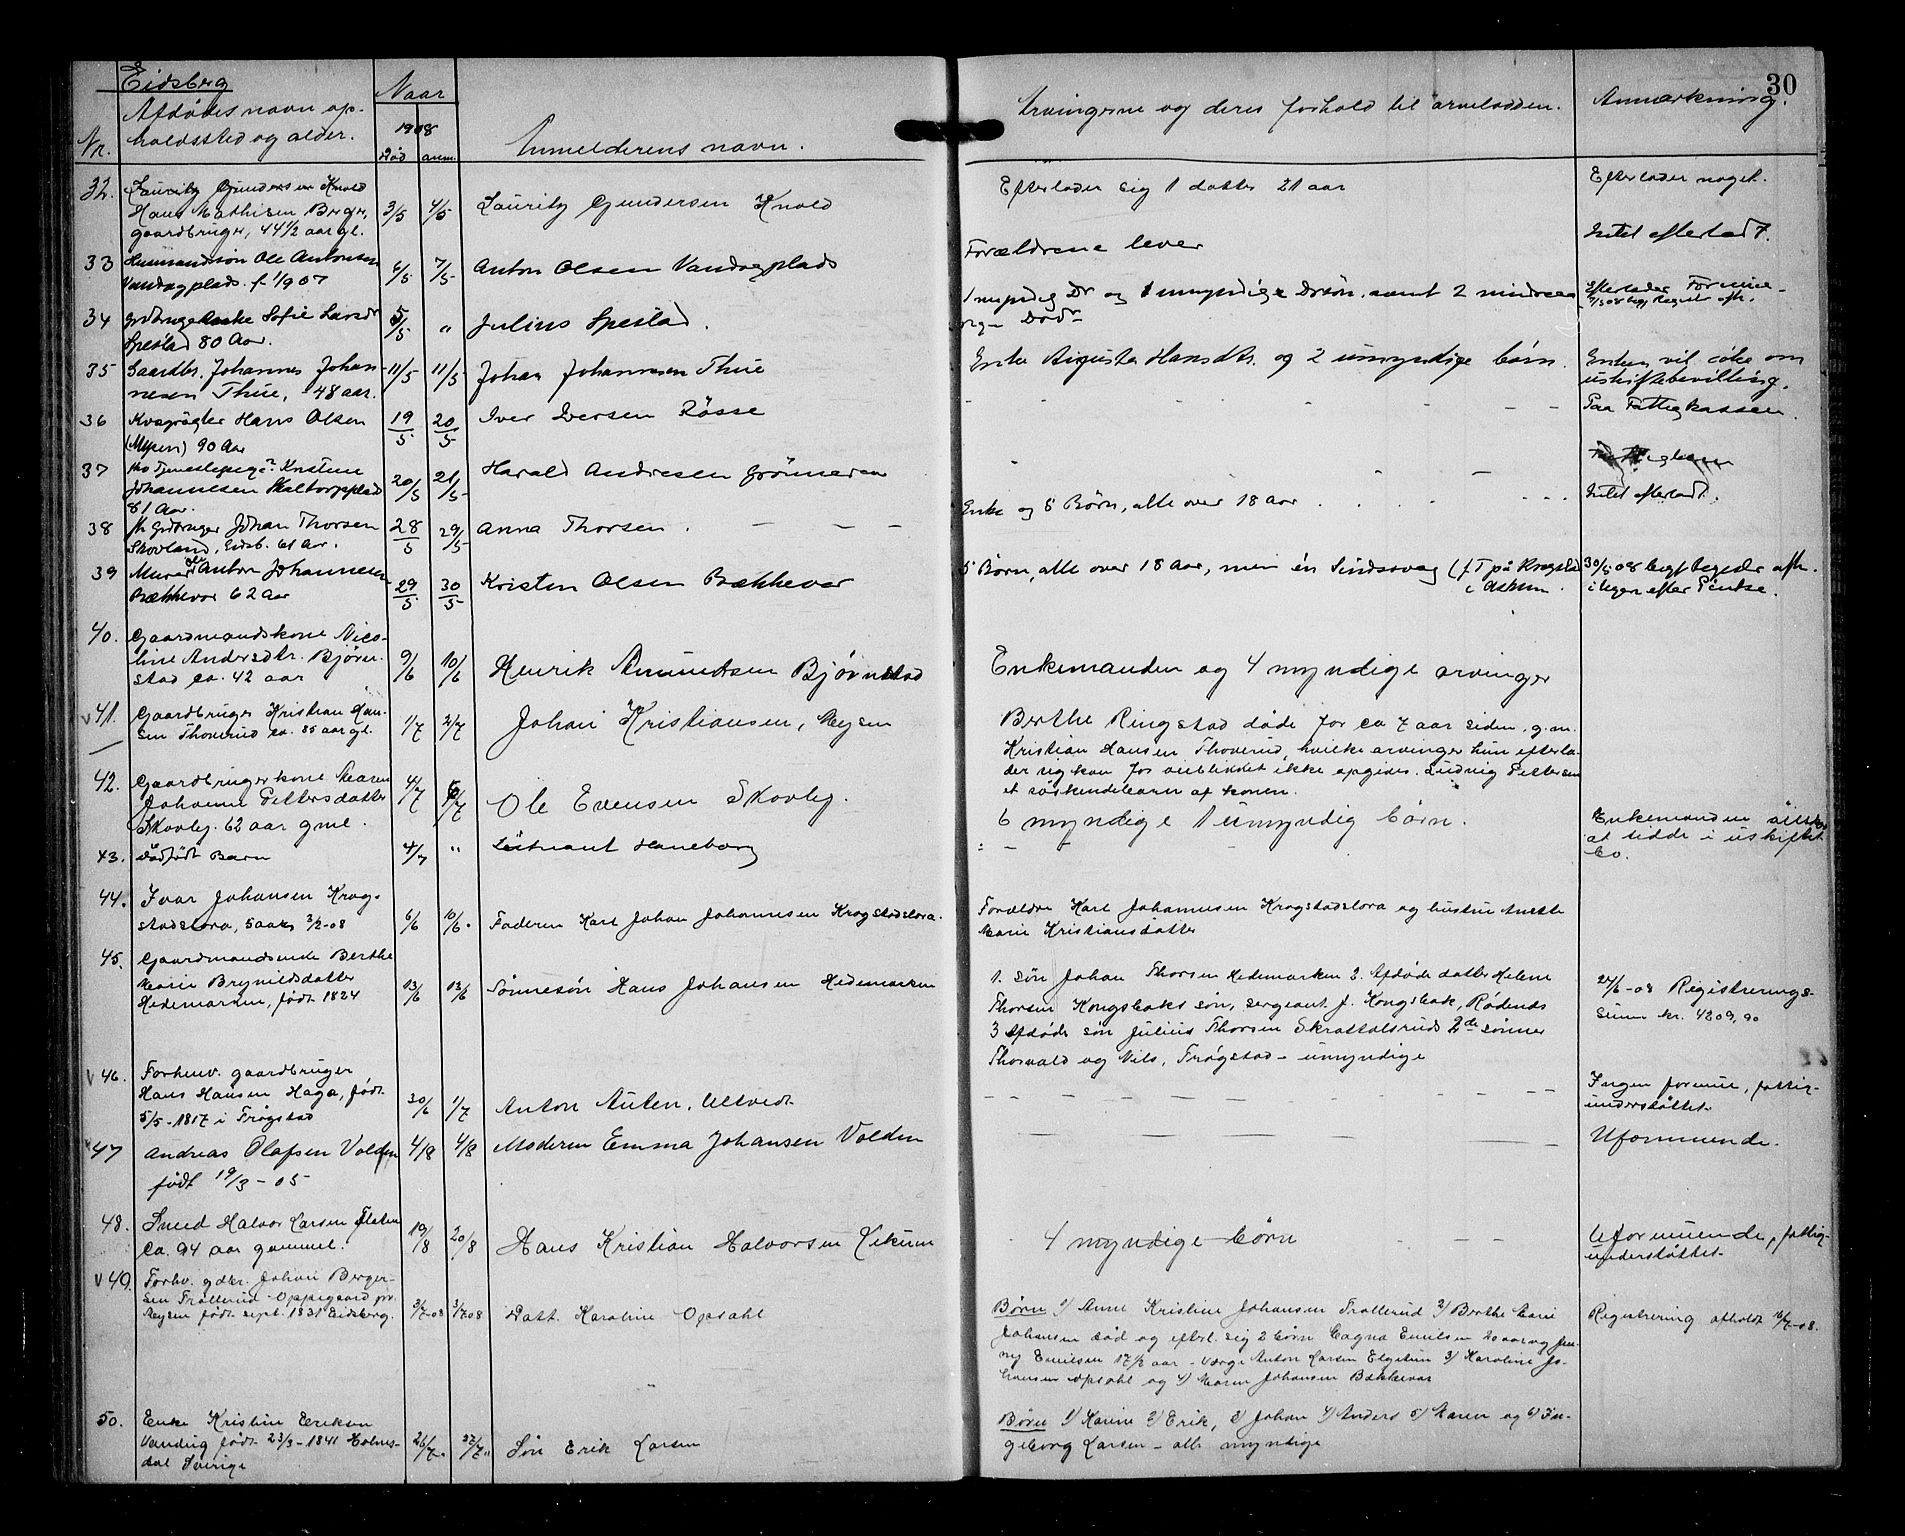 30
Eidsberg
Nr.
Afdødes navn op-
holdssted og alder.
Naar
1908
Død anm.
Anmelderens navn.
Arvingerne og deres forhold til arveladden.
Anmærkning.
32. Lauritz Gundersen Knold
Hans Mathisen Berger,
gaardbruger, 44 1/2 aar gl.
3/5 4/5 Lauritz Gundersen Knold
Efterlader sig 1 datter 21 aar
Efterlader noget.
33 Husmandssøn Ole Antonsen
Vandugplads. f. 1/9 07
6/5 7/5 Anton Olsen Vandugplads
Forældrene lever
Intet efterladt.
34 Gdbrugerenke Sofie Larsdr
Spestad 80 Aar.
5/5 " Julius Spestad.
1 myndig Dr og 1 umyndige Drsøn. samt 2 mindreaa
Efterlader Formue
35 Gaardbr. Johannes Johan-
nesen Thue, 48 aar.
11/5 11/5 Johan Johannesen Thue
Enke Augusta Hansdtr. og 2 umyndige børn.
Enken vil søke om
uskiftebevilling.
36 Hans Olsen
(Mysen) 90 Aar
19/5 20/5 Iver Iversen Røsse
Paa Fattigkassen.
37 Kristine
Johannesen Kaltorpplads
81 Aar.
20/5 21/5 Harald Andresen Grönneren
Intet efterladt.
38 Gdbruger Johan Thorsen
Skovland, Eidsb. 61 Aar.
28/5 29/5 Anna Thorsen.
Enke og 8 Børn, alle over 18 aar
39 Murer Anton Johannesen
Bækkevar 62 Aar
29/5 30/5 Kristen Olsen Bækkevar
5 Børn, alle over 18 Aar, men én Sindssvag (f. T på Krogstad
i Askim.
30/5 08 begj. begjær afh.
i legen efter Pintse.
40. Gaardmandskone Nico-
line Andersdtr. Bjørn-
stad ca. 42 aar
9/6 10/6 Henrik Amundsen Bjørnstad
Enkemanden og 4 myndige arvinger
41. Gaardbruger Kristian Han-
sen Thoverud ca. 85 aar gl.
1/7 2/7 Johan Kristiansen, Mysen
Berthe Ringstad døde for ca 7 aar siden, g.m.
Kristian Hansen Thoverud, hvilke arvinger hun efterla-
der sig kan for øieblikket ikke opgives. Ludvig Pettersen
et søskendebarn af konen.
42. Gaardbrugerkone Maren
Johanne Pettersdatter
Skovby. 62 aar gml.
4/7 6/7 Ole Evensen Skovby.
6 myndige 1 umyndig børn.
Enkemanden
at sidde i uskiftet
bo.
43. Dødfødt Barn
4/7 " Løitnant Haneborg
44. Ivar Johansen Krog-
stadslora, 3/2-08
6/6 10/6. Faderen Karl Johan Johannesen Krogstadslora.
Forældre Karl Johannesen Krogstadslora og hustru Anette
Marie Kristiansdatter
45. Gaardmandsenke Berthe
Marie Brynildsdatter
Hedemarken, født 1824
13/6 13/6 Sønnesøn Hans Johansen Hedemarken
1. søn Johan Thorsen Hedemarken 2. Afdøde datter Helene
Thorsen Kongsbaks søn, sergeant J. Kongsbak, Rødenes
3 Afdøde søn Julius Thorsen Skrattalsruds 2de sønner
Thorvald og Nils, Trøgstad - umyndige
24/6-08 Registrerings-
sum kr. 4309,90
46. Forhenv. gaardbruger
Hans Hansen Haga, født
5/5-1817 i Trøgstad
30/6 1/7 Anton Auten, Ultvedt
Ingen formue, fattig-
understøttet.
47 Andreas Olafsen Volden
født 19/3-05
4/8 4/8 Moderen Emma Johansen Volden
Uformuende.
48. Smed Halvor Larsen Flaten
Ca. 94 aar gammel.
19/8 20/8 Hans Kristian Halvorsen Lekum
4 myndige børn
Uformuende, fattig-
understøttet.
49. Forhv. gdbr. Johan Berger-
sen Trollerud - Oppegaard pr.
Mysen født sept. 1831 Eidsberg.
3/7-08 3/7 08 Datt. Karoline Opsahl
Børn 1) Anne Kristine Johansen Trollerud 2) Berthe Marie
Johansen død og efterl. sig 2 børn Magna Emilsen 20 aar og Jen-
ny Emilsen 17 1/2 aar - Værge Anton Larsen Elgetun 3) Karoline Jo-
hansen Opsahl og 4) Maren Johansen Bækkevar
Registrering afholdt 16/7-08.
50. Enke Kristine Eriksen
Vandug født 23/3-1841 Holmes-
dal Sverige
26/7 27/7 Søn Erik Larsen
Børn 1) Karine 2) Erik, 3) Johan 4) Anders 5) Maren og 6) In-
geborg Larsen - alle myndige